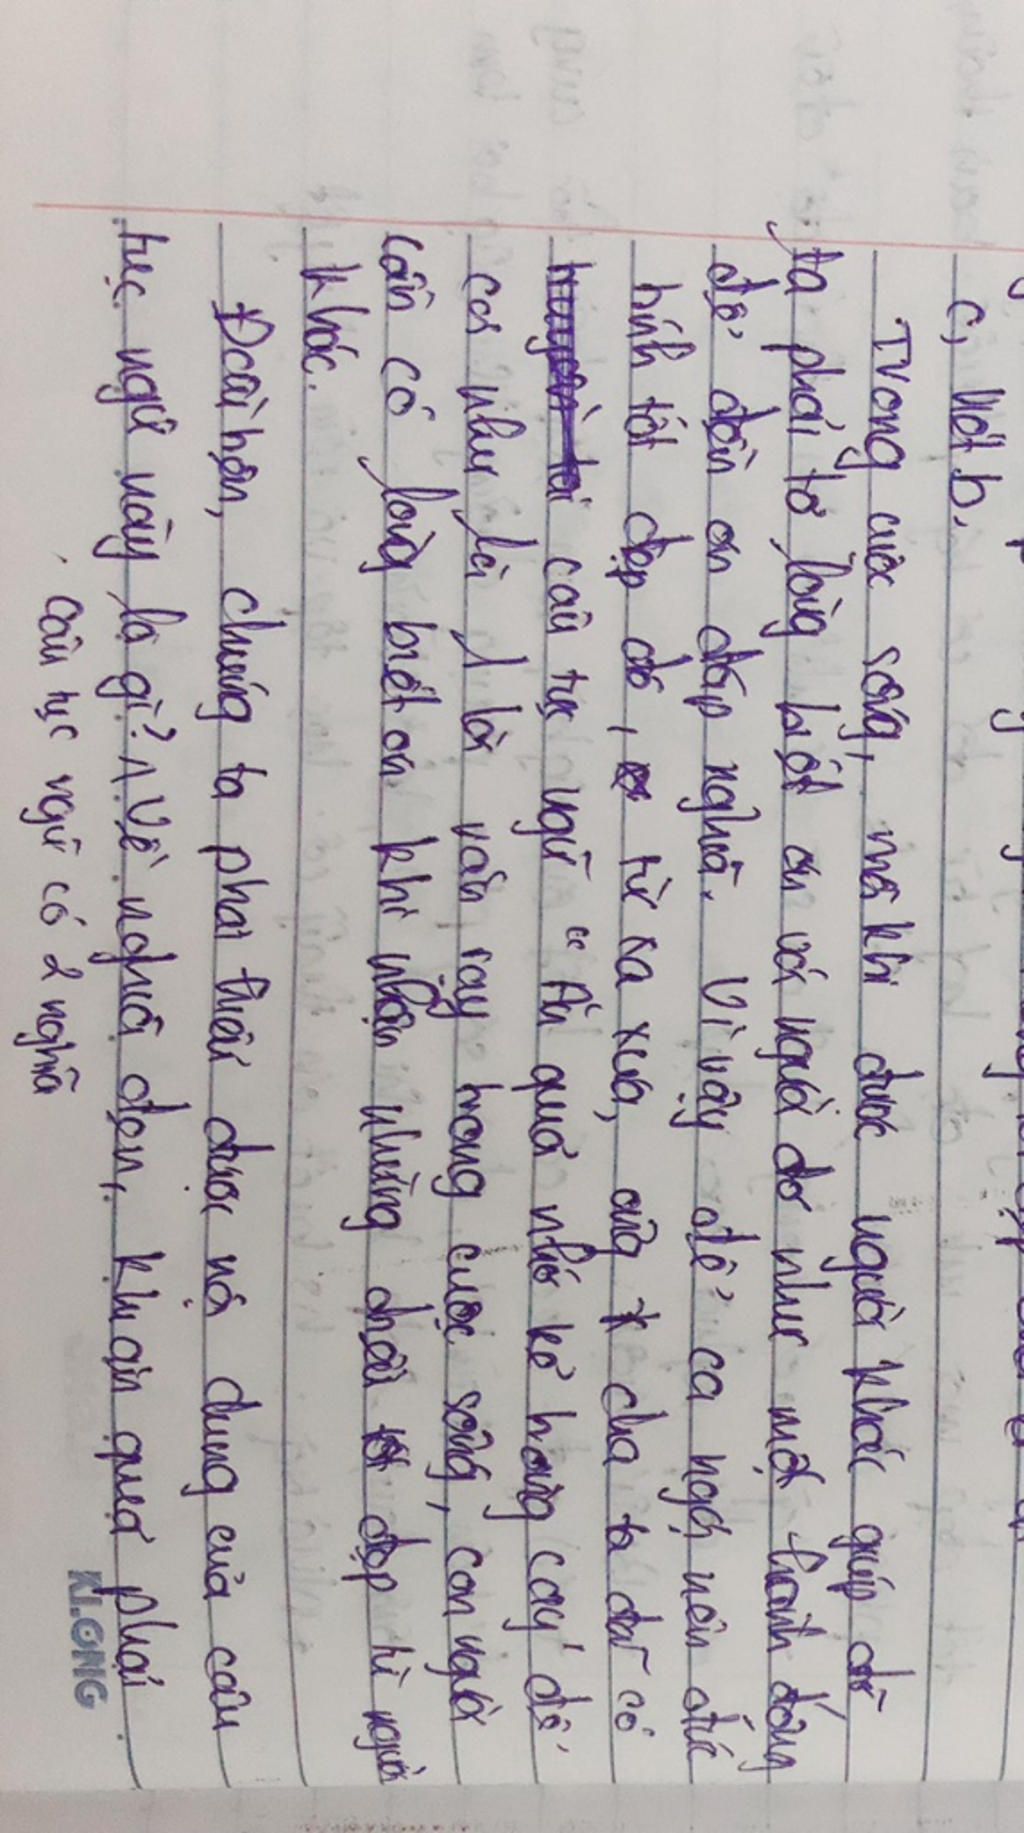 c, Viết b.
Trong cuộc sống, mỗi khi được người khác giúp đỡ
ta phải tỏ lòng biết ơn với người đó như một hành động
để đền ơn đáp nghĩa. Vì vậy để ca ngợi nên đức
tính tốt đẹp đó, từ xa xưa, ông cha ta đã có
câu tục ngữ "Ăn quả nhớ kẻ trồng cây" để
ca như là 1 lời văn rằng trong cuộc sống, con người
cần có lòng biết ơn khi nhận những đẹp từ người
khác.
Đoài hôn, chúng ta phải thấy được nội dung của câu
tục ngữ này là gì? 1. Về nghĩa đen, khi ăn quả phải
câu tục ngữ có 2 nghĩa
KLONG